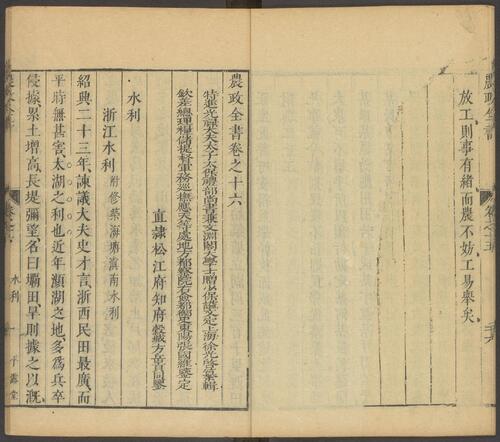 放工則事有緒而農不妨工易舉矣
農政全書卷之十六
特進光祿大夫太子太保禮部尚書兼文淵閣大學士贈少保諡文定上海徐光啓纂輯
欽差總理糧儲提督軍務巡撫應天等處地方都察院右僉都御史東陽張國維鑒定
直隸松江府知府穀城方岳貢同鑒
水利
浙江水利 附修築海塘滇南水利
紹興二十三年諫議大夫史才言浙西民田最廣而
平時無甚害太湖之利也近年瀕湖之地多爲兵卒
侵據累土增高長堤彌望名曰壩田旱則據之以溉
水利 一 平露堂